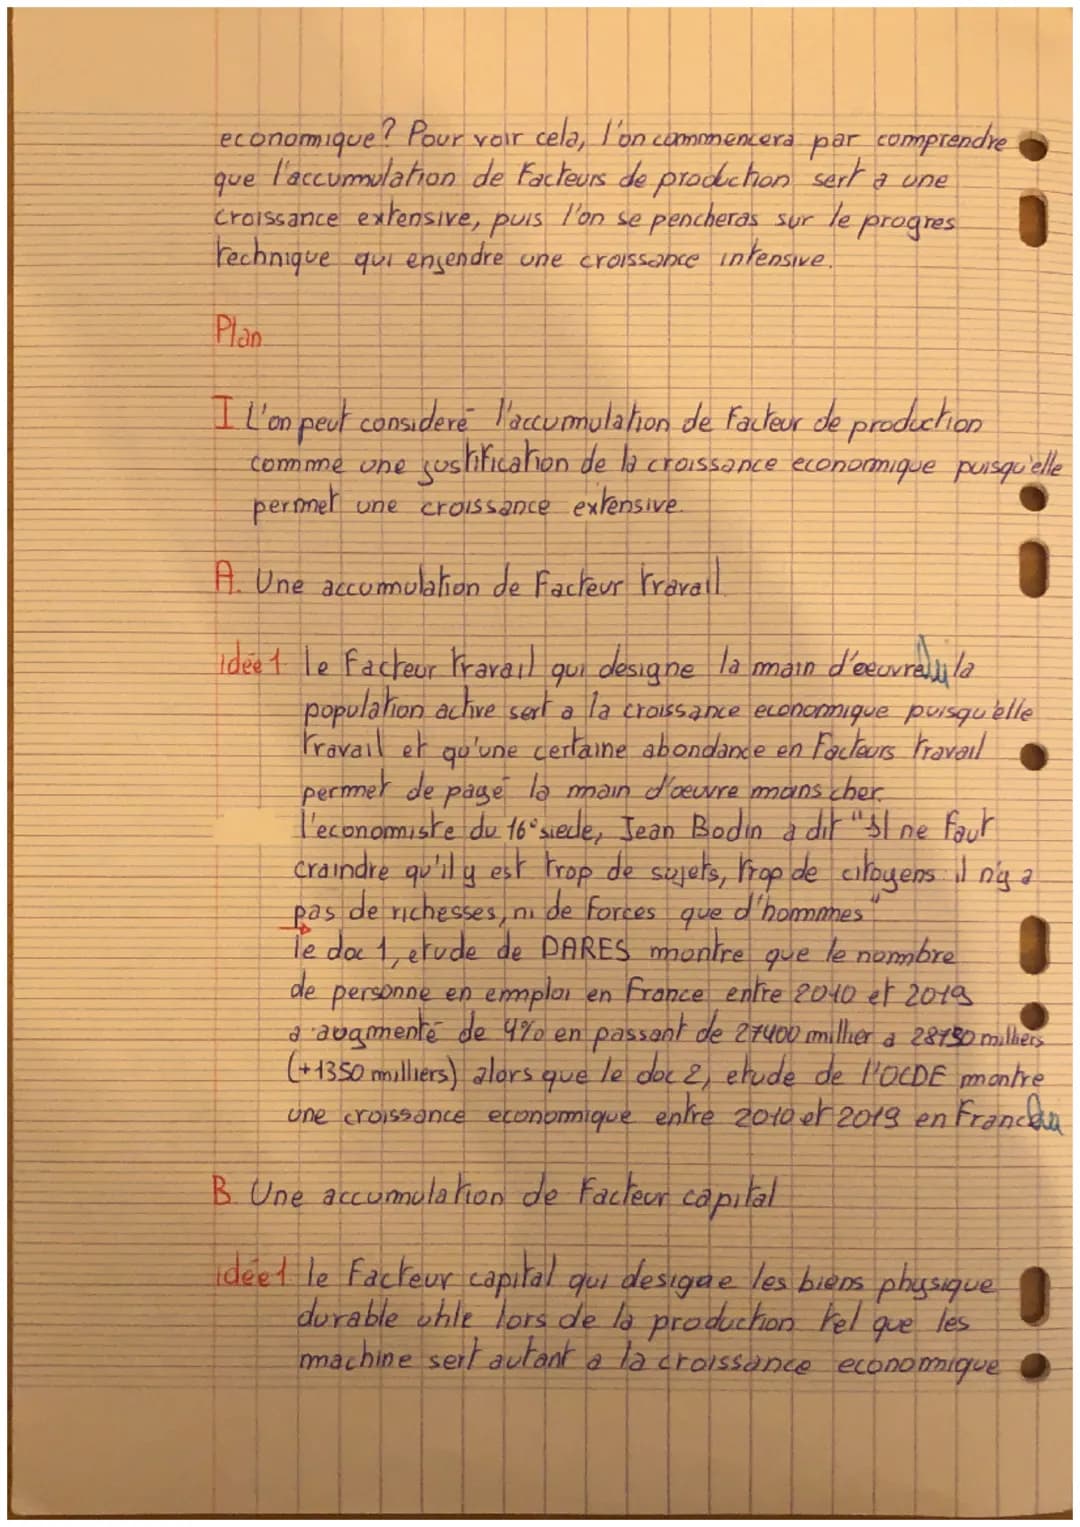 economique? Pour voir cela, l'on commencera par comprendre
que l'accummulation de Facteurs de production sert a une
croissance extensive, puis l'on se pencheras sur le progres
technique qui engendre une croissance intensive.
Plan
I L'on peut consideré l'accumulation de Facteur de production
comme une justification de la croissance economique puisqu'elle
permet une croissance extensive.
A. Une accumulation de Facteur travail.
idée 1 le Facteur travail qui designe la main d'oeuvre la
population active sert a la croissance economique puisqu'elle
travail et qu'une certaine abondance en Facteurs travail
permet de payé la main d'œuvre moins cher.
l'economiste du 16° siecle, Jean Bodin a dit "Il ne faut
craindre qu'il y est trop de sujets, trop de citoyens il n'y a
pas de richesses, ni de Forces que d'hommes"
le doc 1, etude de DARES montre que le nombre
de personne en emploi en France entre 2010 et 2019
a augmenté de 4% en passant de 27400 millier a 28750 milliers
(+1350 milliers) alors que le doc 2, etude de l'OCDE montre
une croissance economique entre 2010 et 2019 en France
B. Une accumulation de Facteur capital
idée 1 le Facteur capital qui designe les biens physique
durable utile lors de la production tel que les
machine sert autant a la croissance economique